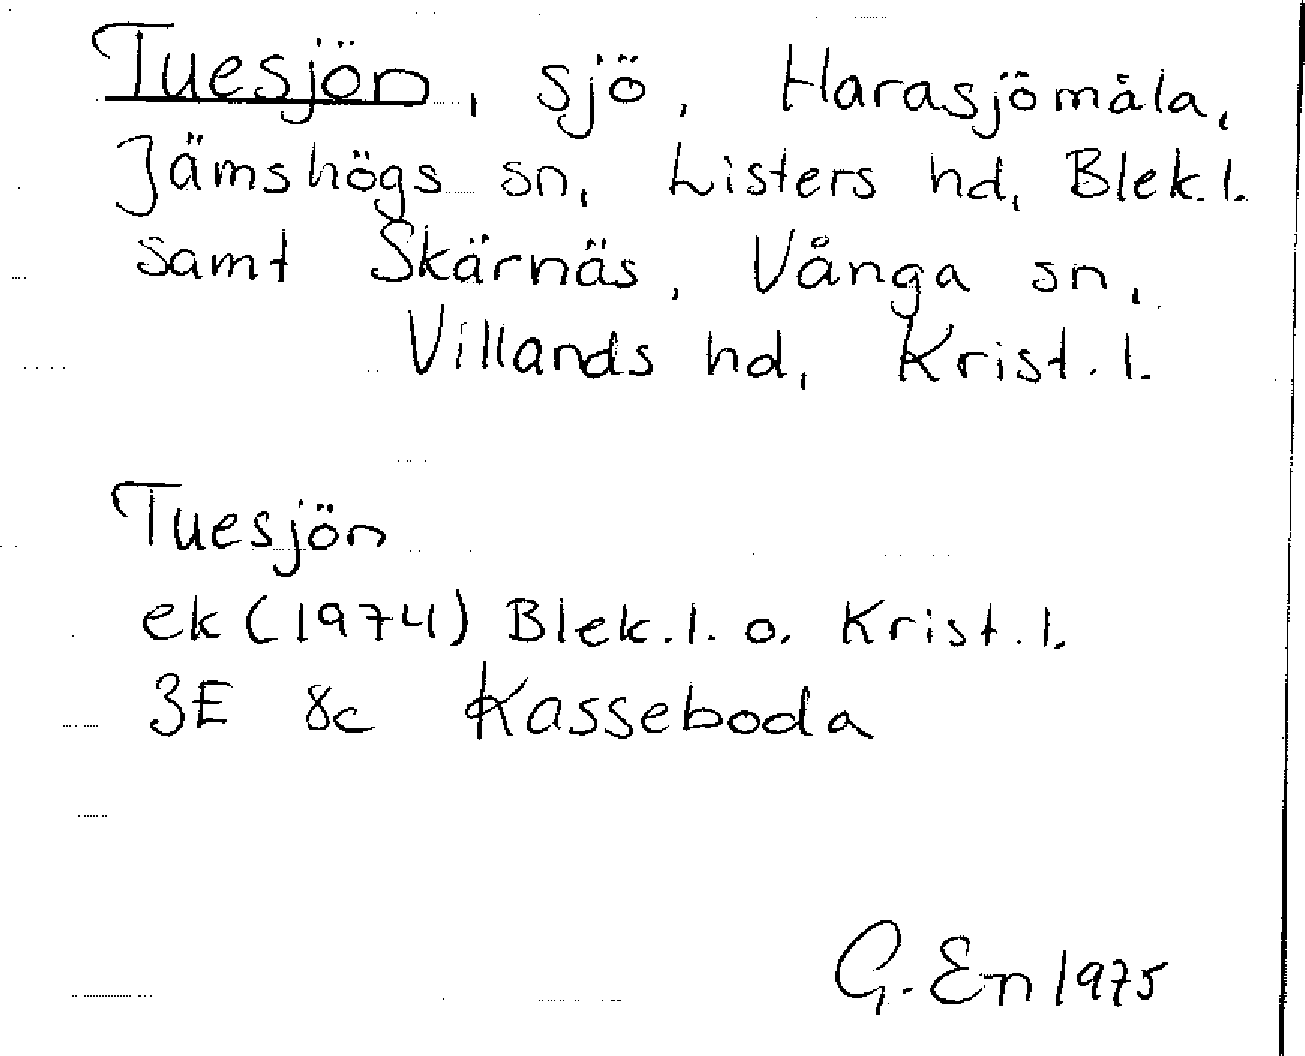 Tuesjön, sjö, Harasjömåla,
Jämshögs sn, Listers hd, Blek.l.
samt Skärnäs, Vånga sn,
Villands hd, Krist.l.
Tuesjön
ek (1974) Blek.l. o. Krist.l.
3E 8c Kasseboda
G. En 1975